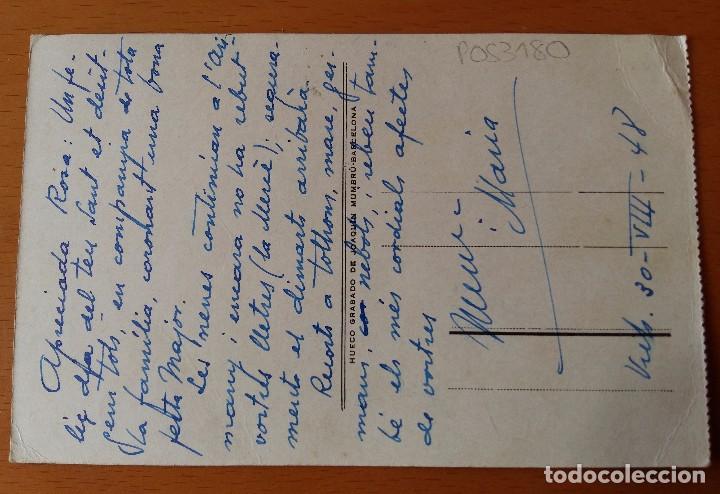 Apreciada Rosa: Un fe-
liç dia del teu Sant et desit-
gem tots, en companyia de tota
la família, coronant una bona
festa Major.
Les nenes continuan a l'Ari-
many i encara no ha rebut
vostres lletres (la Mercè), segura-
ment es dimarts arribarà.
Records a tothom, mare, ger-
mans, nebots; rebeu tam-
bé els més cordials afectes
de vostres
Maria
30-VIII-48
HUECO GRABADO DE JOAQUÍN MUMBRÚ-BARCELONA
POS3180
todocoleccion
todocoleccion.net